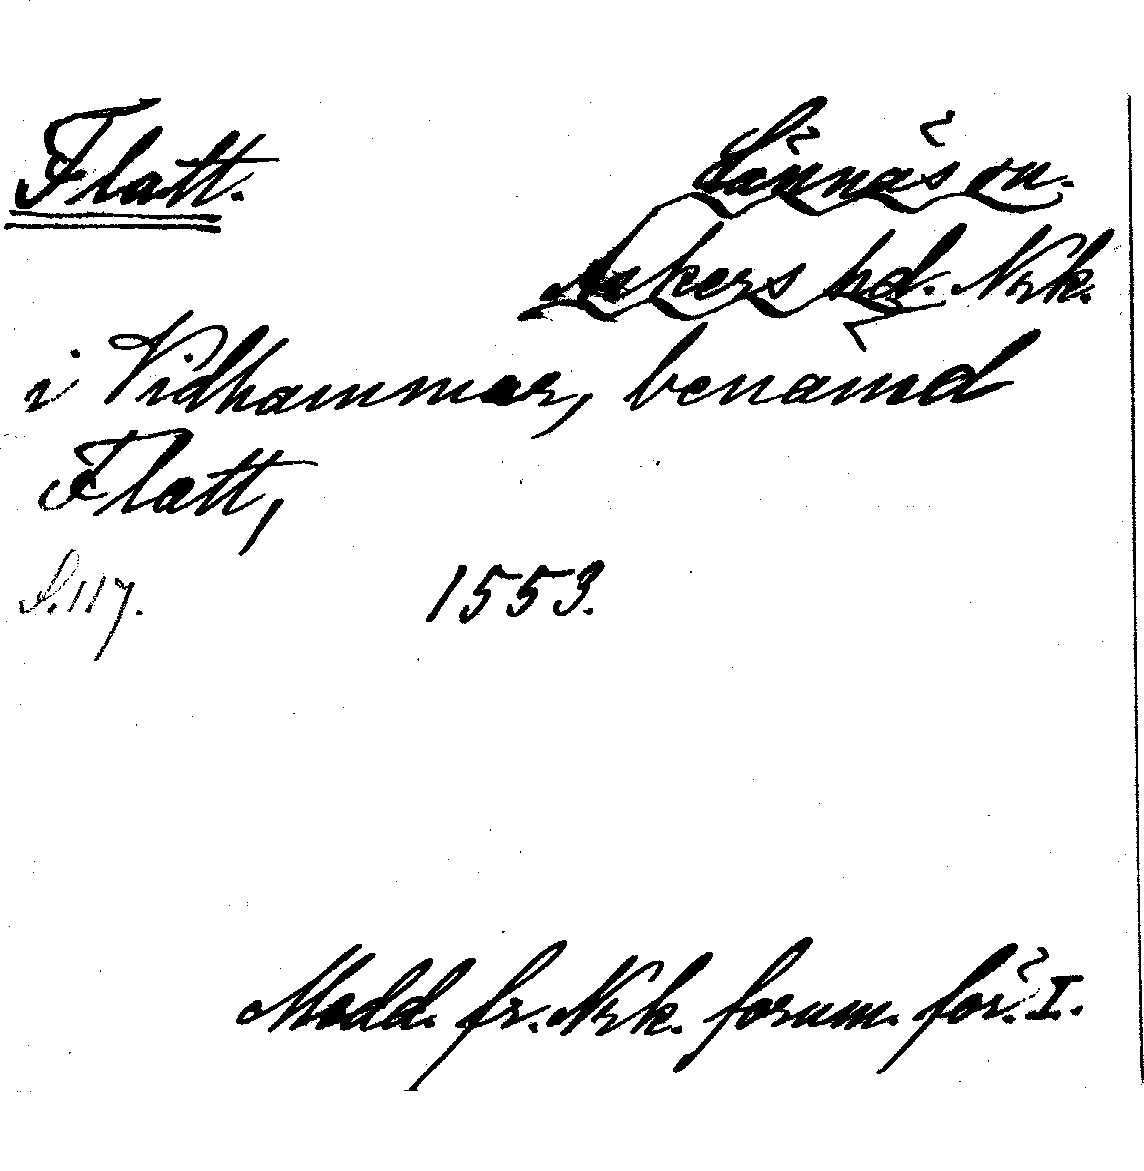 Flatt.
Lännäs sn.
Askers hd. Nrk.
i Vidhammar, benämd
Flatt,
S. 117. 1553.
Medd. fr. Nrk. fornm. för. I.